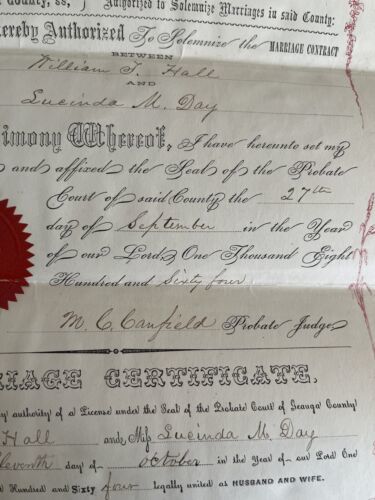 County, ss, Authorized to Solemnize Marriages in said County:
hereby Authorized To Solemnize the MARRIAGE CONTRACT
BETWEEN
William T. Hall
AND
Lucinda M. Day
timony Whereof, I have hereunto set my
and affixed the Seal of the Probate
Court of said County the 27th
day of September in the Year
of our Lord One Thousand Eight
Hundred and Sixty four
M. C. Canfield Probate Judge
RIAGE CERTIFICATE.
by authority of a License under the Seal of the Probate Court of Geauga County
Hall and Miss Lucinda M. Day
eleventh day of October in the Year of our Lord One
Hundred and Sixty four legally united as HUSBAND AND WIFE.